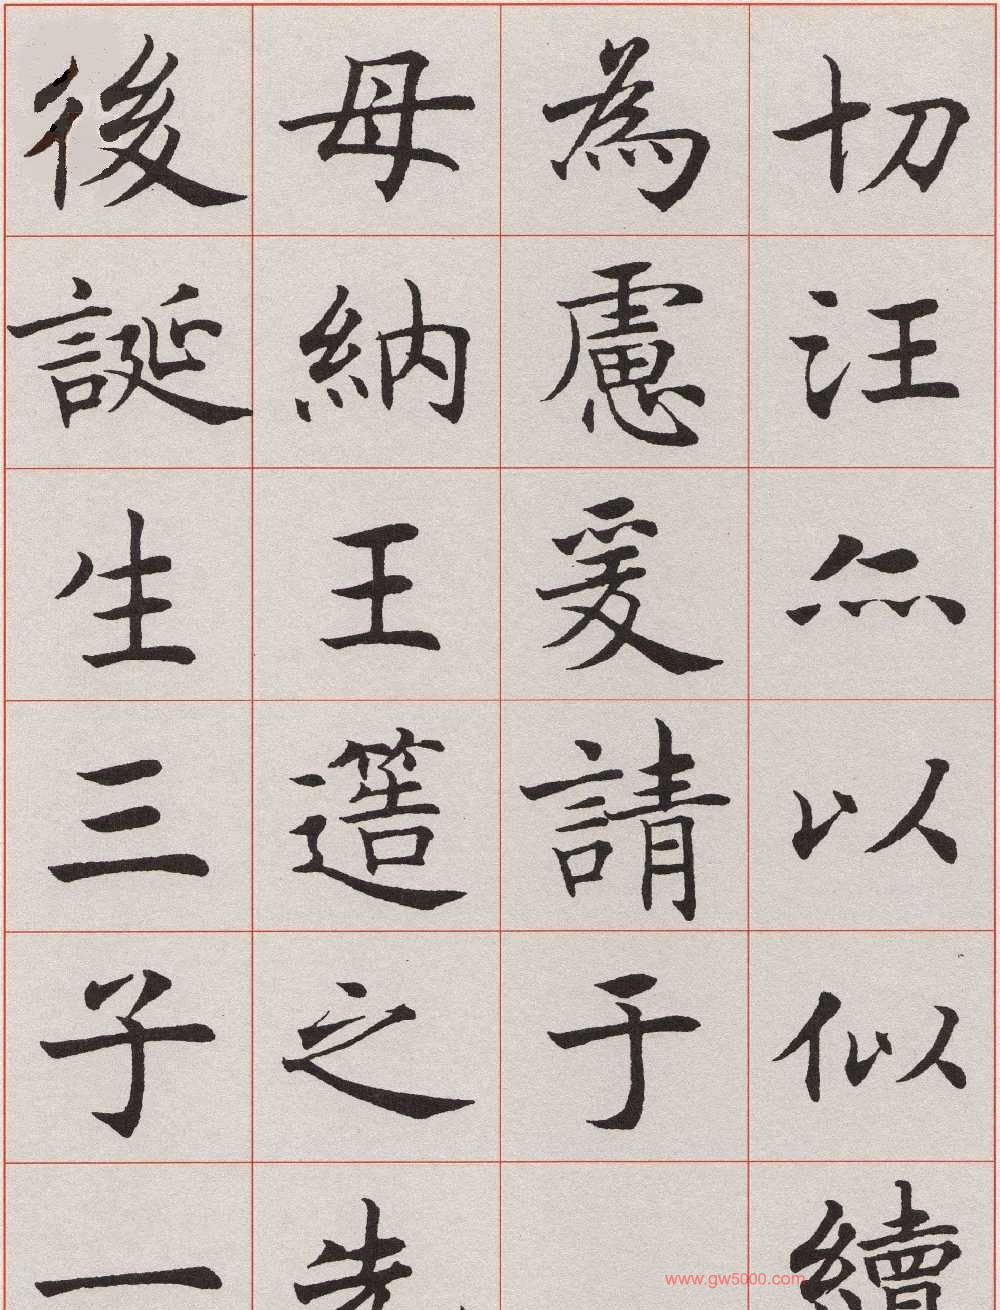 切汪亦以似續
為慮爰請于
母納王簉之先
後誕生三子一
www.gw5000.com